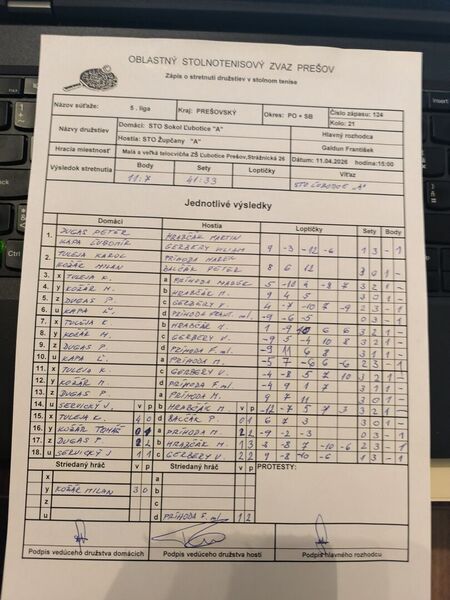 OBLASTNÝ STOLNOTENISOVÝ ZVAZ PREŠOV
Zápis o stretnutí družstiev v stolnom tenise
Názov súťaže: 5. liga Kraj: PREŠOVSKÝ Okres: PO + SB Číslo zápasu: 124
Kolo: 21
Názvy družstiev Domáci: STO Sokol Ľubotice "A" Hlavný rozhodca
Hostia: STO Župčany "A" Galdun František
Hracia miestnosť Malá a veľká telocvičňa ZŠ Ľubotice Prešov,Strážnická 26 Dátum: 11.04.2026 hodina:15:00
Výsledok stretnutia Body Sety Loptičky Víťaz
11:7 41:33 STO ĽUBOTICE "A"
Jednotlivé výsledky
Domáci Hostia Loptičky Sety Body
1. DUGAS PETER HRABČÁK MARTIN
KAPA ĽUBOMÍR GERBERY 9 -3 -12 -6 1 3 - 1
2. TULEJA KAROL PRÍHODA MAREK
KOŽÁR MILAN BALČÁK PETER 8 6 12 3 0 1 -
3. x TULEJA K. a PRÍHODA MAREK 5 -10 -8 7 3 2 1 -
4. y KOŽÁR M. b HRABČÁK M. 9 4 5 3 0 1 -
5. z DUGAS P. c GERBERY V. -7 -10 7 -9 2 3 - 1
6. u KAPA Ľ. d PRÍHODA -9 -6 -5 0 3 - 1
7. x TULEJA K b HRABČÁK M. 1 -9 10 6 6 3 2 1 -
8. y KOŽÁR M. c GERBERY V. -9 5 -4 10 8 3 2 1 -
9. z DUGAS P. d PRÍHODA F. ml. -9 11 6 8 3 1 1 -
10. u KAPA Ľ. a PRÍHODA M. -7 -6 6 -6 2 3 - 1
11. x TULEJA K. c GERBERY V. -4 -8 5 7 10 3 2 1 -
12. y KOŽÁR M. d PRÍHODA F. ml. -4 9 1 7 3 1 1 -
13. z DUGAS P. a PRÍHODA M. 9 7 11 3 0 1 -
14. u SERVICKÝ J. v p b HRABČÁK M. v p -12 -7 5 7 3 3 2 1 -
15. x TULEJA K. 4 0 d BALČÁK P. 0 1 6 7 3 3 0 1 -
16. y KOŽÁR TOMÁŠ 0 a PRÍHODA M. 2 -9 -2 -3 0 3 - 1
17. z DUGAS P. 2 2 b HRABČÁK M. 1 3 8 -8 7 -10 -6 2 3 - 1
18. u SERVICKÝ J 1 1 c GERBERY V. 2 2 9 -8 -10 -6 1 3 - 1
Striedaný hráč v p Striedaný hráč v p PROTESTY:
x a
y KOŽÁR MILAN 3 0 b
z c
u d PRÍHODA F. ml. 1 2
Podpis vedúceho družstva domácich Podpis vedúceho družstva hostí Podpis hlavného rozhodcu